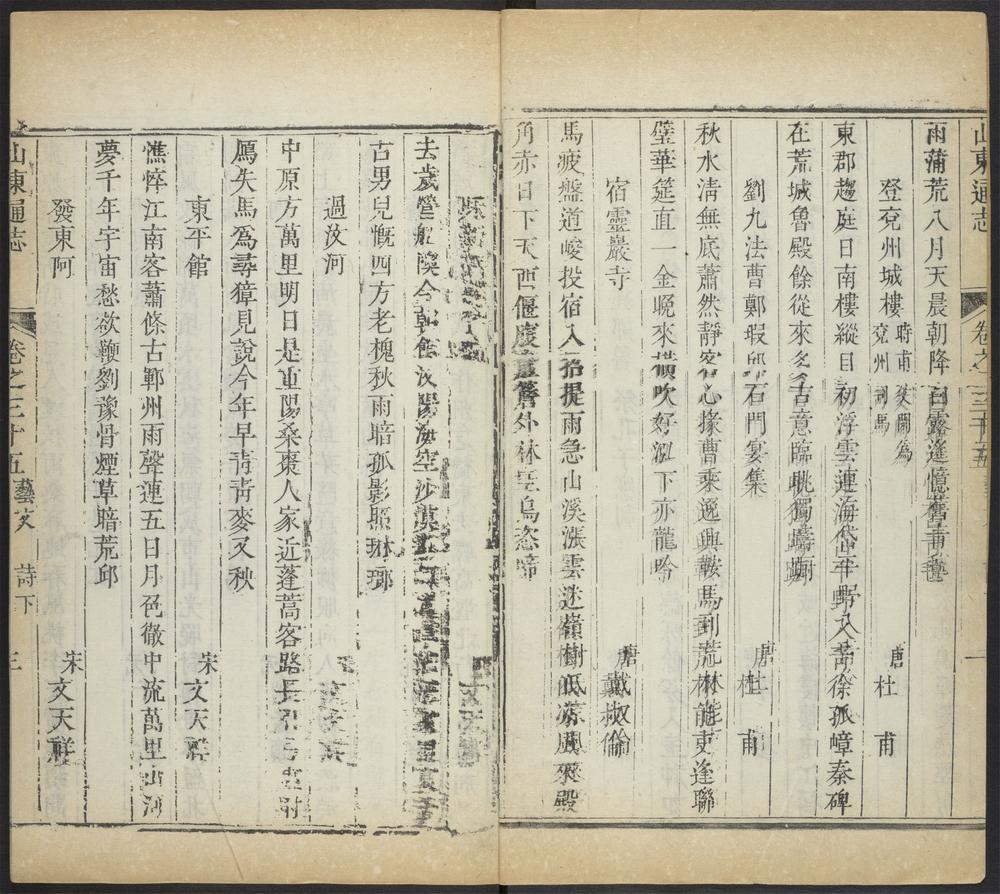 山東通志
卷之三十五
一
雨蒲荒八月天晨朝降白露遙憶舊青氊
登兗州城樓 時甫父閑為兗州司馬 唐 杜 甫
東郡趨庭日南樓縱目初浮雲連海岱平野入青徐孤嶂秦碑
在荒城魯殿餘從來多古意臨眺獨躊蹰
劉九法曹鄭瑕邱石門宴集 唐 杜 甫
秋水淸無底蕭然靜客心掾曹乘逸興鞍馬到荒林能吏逢聯
璧華筵直一金晚來橫吹好泓下亦龍吟
宿靈巖寺 唐 戴叔倫
馬疲盤道峻投宿入招提雨急山溪漲雲迷嶺樹低凉風來殿
角赤日下天西偃腹簷外林空烏恣啼
文天祥
去歲營船隩今朝館汶陽海空沙漠
古男兒慨四方老槐秋雨暗孤影照琳瑯
過汶河
中原方萬里明日是重陽桑棗人家近蓬蒿客路長引弓
鴈失馬為尋獐見說今年旱青青麥又秧
東平館 宋 文天祥
憔悴江南客蕭條古鄆州雨聲連五日月色徹中流萬里山河
夢千年宇宙愁欲鞭劉豫骨煙草暗荒邱
發東阿 宋 文天祥
山東通志
卷之三十五 藝文 詩下
三